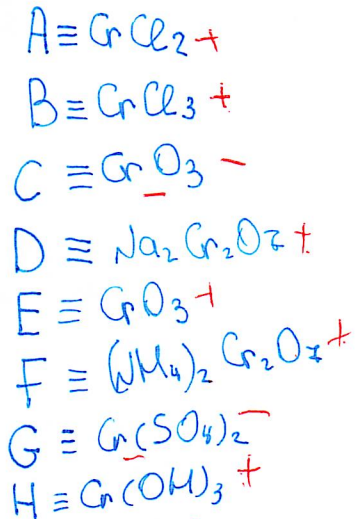 A ≡ CrCl2 +
B ≡ CrCl3 +
C ≡ CrO3 -
D ≡ Na2Cr2O7 +
E ≡ CrO3 +
F ≡ (NH4)2Cr2O7 +
G ≡ Cr(SO4)2 -
H ≡ Cr(OH)3 +